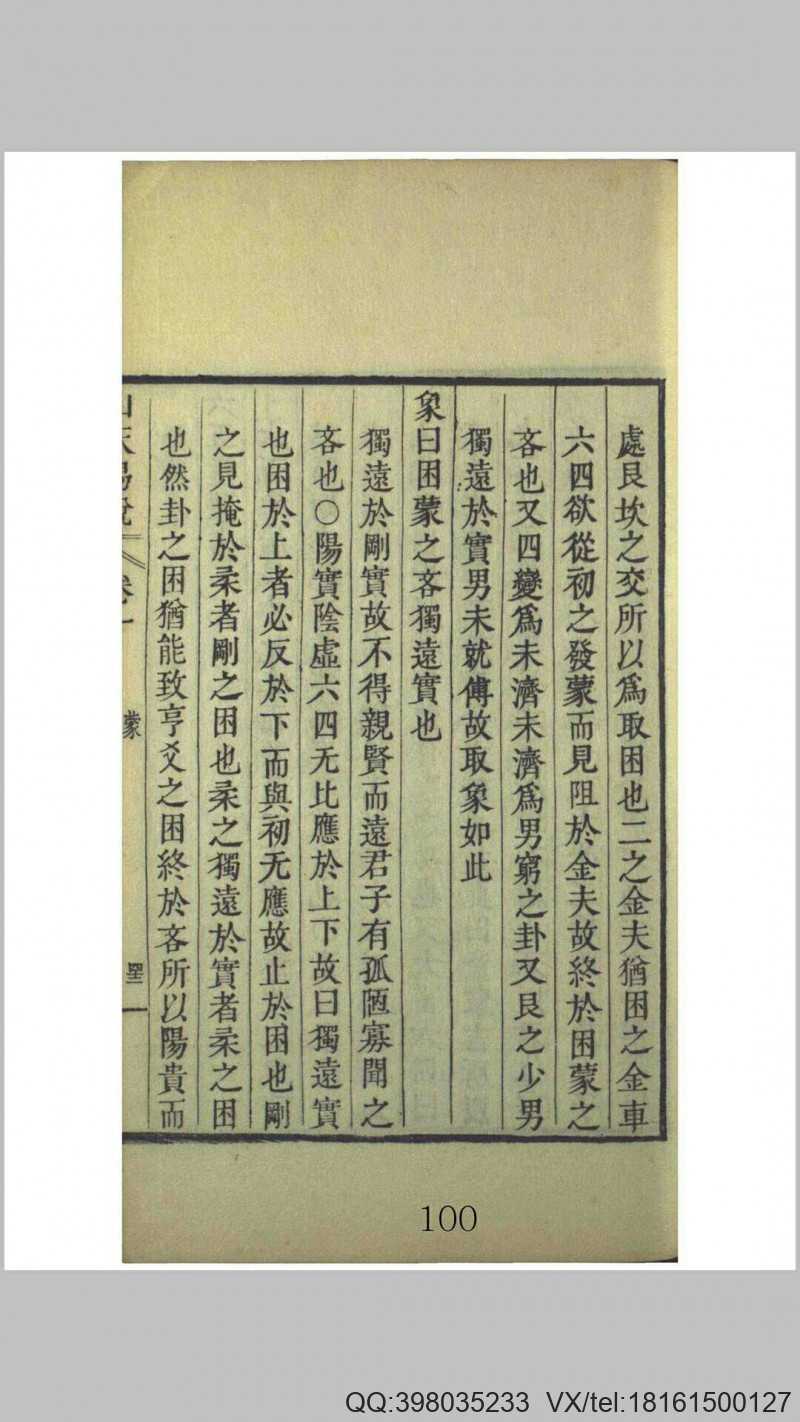 處艮坎之交所以爲取困也二之金夫猶困之金車
六四欲從初之發蒙而見阻於金夫故終於困蒙之
吝也又四變爲未濟未濟爲男窮之卦又艮之少男
獨遠於實男未就傅故取象如此
象曰困蒙之吝獨遠實也
獨遠於剛實故不得親賢而遠君子有孤陋寡聞之
吝也○陽實陰虛六四无比應於上下故曰獨遠實
也困於上者必反於下而與初无應故止於困也剛
之見掩於柔者剛之困也柔之獨遠於實者柔之困
也然卦之困猶能致亨爻之困終於吝所以陽貴而
易說 卷一 蒙
100
QQ:398035233 VX/tel:18161500127